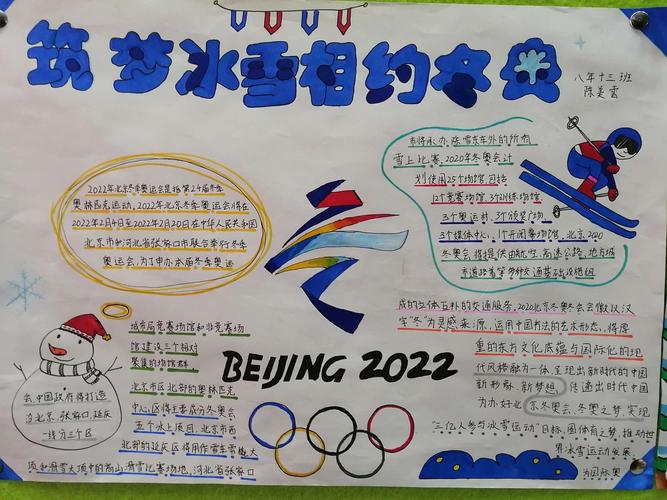 筑梦冰雪相约冬奥
八年十三班
陈美雪
2022年北京冬季奥运会是指第24届冬季
奥林匹克运动，2022年北京冬季奥运会将在
2022年2月4日至2022年2月20日在中华人民共和国
北京市和河北省张家口市联合举行冬季
奥运会，为了申办本届冬季奥运
会，中国政府将打造
沿北京，张家口，延庆
一线分三个区
域布局竞赛场馆和非竞赛场
馆建设三个相对
聚集的场馆群
北京市区北部的奥林匹克
中心区将主要成分冬奥会
五个冰上项目，北京市西
北部的延庆区将用作雪车雪橇大
项和滑雪大项中的高山滑雪比赛场地，河北省张家口
市将承办除雪车外的所有
雪上比赛，2020年冬奥会计
划使用25个场馆，包括
12个竞赛场馆，3个训练场馆
3个奥运村，3个颁奖广场，
3个媒体中心，1个开闭幕场馆，北京2020
冬奥会将提供由航空，高速公路，地方城
市道路等多种交通基础设施组
成的立体互补的交通服务，2020北京冬奥冬会会徽以汉
字“冬”为灵感来源，运用中国书法的艺术形态，将厚
重的东方文化底蕴与国际化的现
代风格融为一体，呈现出新时代的中国
新形象，新梦想，传递出时代中国
为办好北京冬奥会，冬奥之梦，实现
“三亿人参与冰雪运动”目标，圆体育之梦，推动世
界冰雪运动发展，
为国际奥
BEIJING 2022